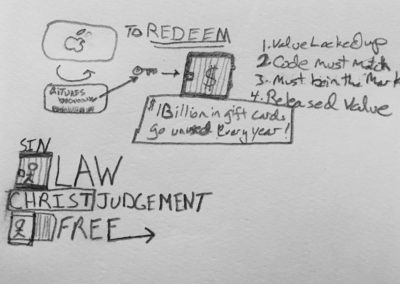 TO REDEEM
1. Value Locked up
2. Code must match
3. Must be in the Mark
4. Released Value
$
$1 Billion in gift cards
go unused every year!
SIN
LAW
CHRIST JUDGEMENT
FREE